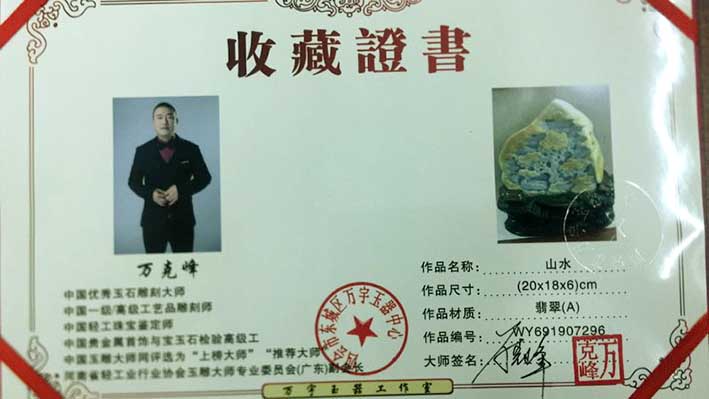 收藏證書
万克峰
中国优秀玉石雕刻大师
中国一级/高级工艺品雕刻师
中国轻工珠宝鉴定师
中国贵金属首饰与宝玉石检验高级工
中国玉雕大师同评选为“上榜大师” “推荐大师”
河南省轻工业行业协会玉雕大师专业委员会(广东)副会长
作品名称: 山水
作品尺寸: (20x18x6)cm
作品材质: 翡翠(A)
作品编号: WY691907296
大师签名: 万克峰
万克峰
会市东城区万宇玉器中心
万宇玉器工作室